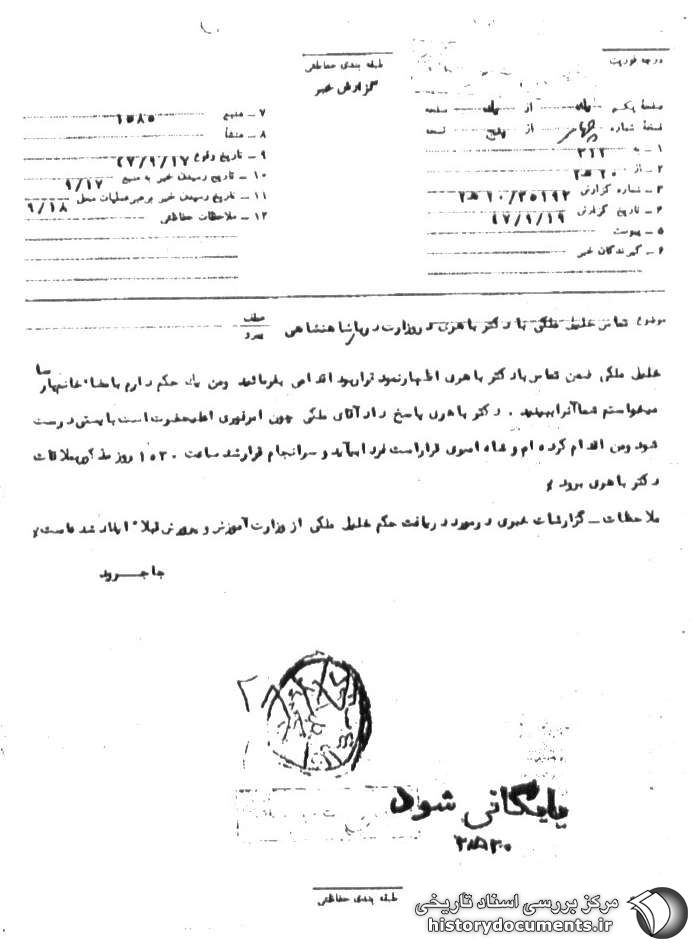 درجه فوریت
طبقه بندی حفاظتی
گزارش خبر
صفحهٔ یکم از یک صفحه
نسخهٔ شماره چهار از پنج نسخه
۱ – به ۳۱۲
۲ – از ۲۰ ه‍ ۲
۳ – شماره گزارش ۱۰/۳۵۱۹۲ ه‍ ۲
۴ – تاریخ گزارش ۴۷/۹/۱۹
۵ – پیوست
۶ – گیرندگان خبر
۷ – منبع ۱۵۸۵
۸ – منشأ
۹ – تاریخ وقوع ۴۷/۹/۱۷
۱۰ – تاریخ رسیدن خبر به منبع ۹/۱۷
۱۱ – تاریخ رسیدن خبر برهبر عملیات محل ۹/۱۸
۱۲ – ملاحظات حفاظتی
موضوع تماس خلیل ملکی با دکتر باهری در وزارت دربار شاهنشاهی
عطف
پیرو
خلیل ملکی ضمن تماس با دکتر باهری اظهار نمود قرار بود اقدامی بفرمائید ومن یک حکم دارم بامضاء خانم پارسا
میخواستم شما آنرا ببینید . دکتر باهری پاسخ داد آقای ملکی چون امر فوری اعلیحضرت است بایستی درست
شود ومن اقدام کرده ام و قرار است فردا بیاید و سرانجام قرار شد ساعت ۱۵۳۰ روز مذکور بملاقات
دکتر باهری برود
ملاحظات – گزارشات خبری در مورد دریافت حکم خلیل ملکی از وزارت آموزش و پرورش قبلاً ایفاد شده است
جاجرود
بایگانی شود
طبقه بندی حفاظتی
مرکز بررسی اسناد تاریخی
historydocuments.ir